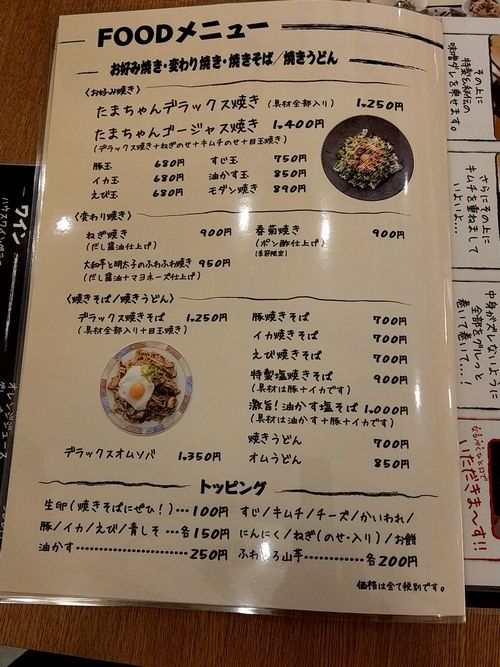 FOODメニュー
お好み焼き・変わり焼き・焼きそば/焼きうどん
〈お好み焼き〉
たまちゃんデラックス焼き (具材全部入り) 1,250円
たまちゃんゴージャス焼き 1,400円
(デラックス焼き+ねぎのせ+キムチのせ+目玉焼き)
豚玉 680円 すじ玉 750円
イカ玉 680円 油かす玉 850円
えび玉 680円 モダン焼き 890円
〈変わり焼き〉
ねぎ焼き 900円 春菊焼き 900円
(だし醤油仕上げ) (ポン酢仕上げ)
(季節限定)
大和芋と明太子のふわふわ焼き 950円
(だし醤油+マヨネーズ仕上げ)
〈焼きそば/焼きうどん〉
デラックス焼きそば 1,250円
(具材全部入り+目玉焼き)
デラックスオムソバ 1,350円
豚焼きそば 700円
イカ焼きそば 700円
えび焼きそば 700円
特製塩焼きそば 900円
(具材は豚+イカです)
激旨!油かす塩そば 1,000円
(具材は油かす+豚+イカ)
焼きうどん 700円
オムうどん 850円
トッピング
生卵(焼きそばにぜひ!)…100円
豚/イカ/えび/青しそ…各150円
油かす……………250円
すじ/キムチ/チーズ/かいわれ/
にんにく/ねぎ(のせ・入り)/お餅
ふわとろ山芋…………各200円
価格は全て税別です。
ワイン
その上に
特製&秘伝の
味噌ダレを乗せます。
さらにその上に
キムチを重ねまして
いよいよ…
中身がズレないように
全部をグルっと
巻いて巻いて…!
なるべくひと口で
いただきま〜す!!
オレンジジュース